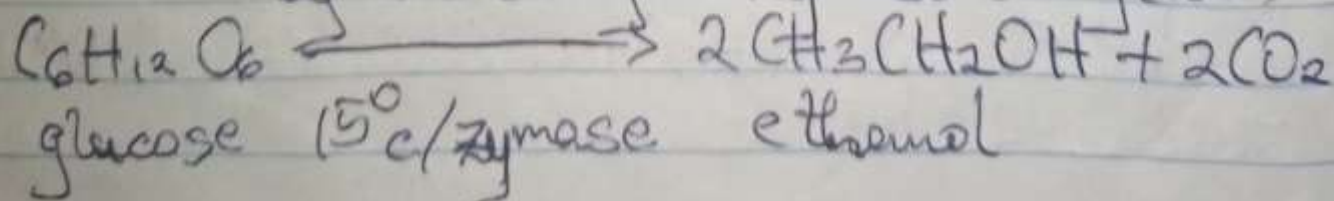 C₆H₁₂O₆ ⟶ 2CH₃CH₂OH + 2CO₂
glucose 15°c/zymase ethanol